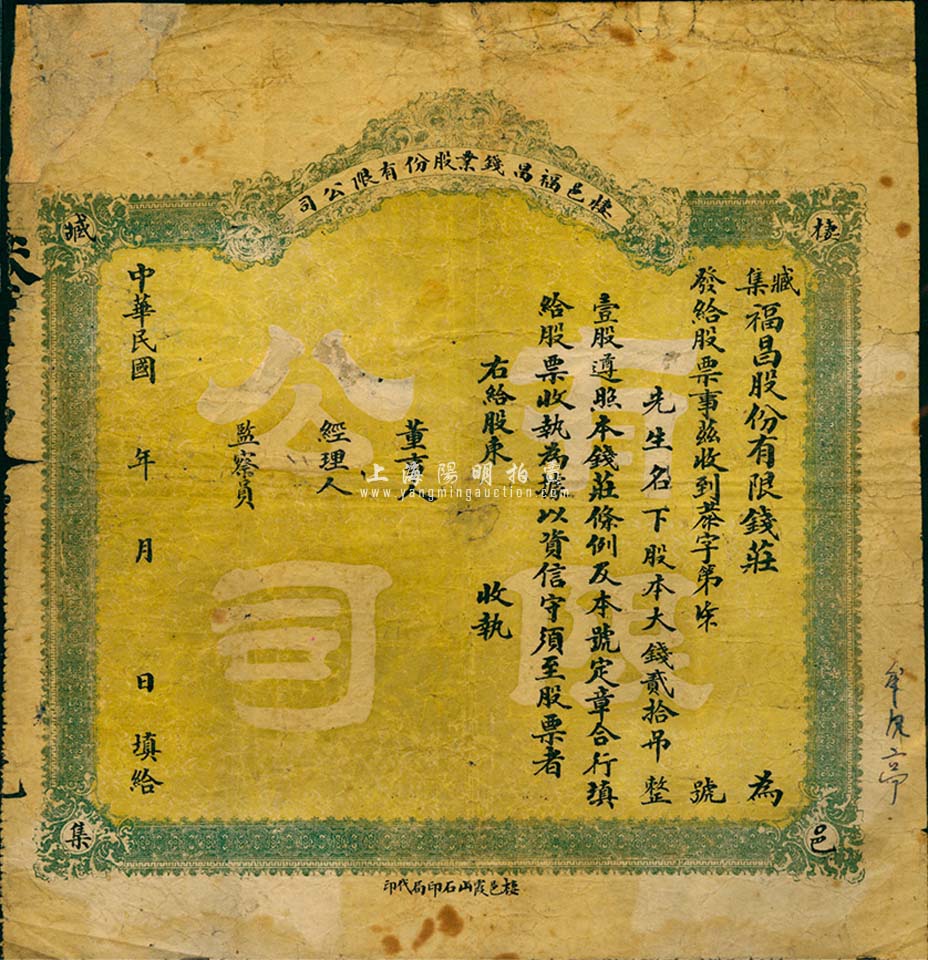 棲邑福昌錢業股份有限公司
棲
邑
臧
集
臧集福昌股份有限錢莊為
發給股票事茲收到恭字第柒號
先生名下股本大錢貳拾吊整
壹股遵照本錢莊條例及本號定章合行填
給股票收執為據以資信守須至股票者
右給股東 收執
董事人
經理人
監察員
中華民國 年 月 日填給
有限
公司
棲邑霞山石印局代印
上海陽明拍賣
www.yangmingauction.com